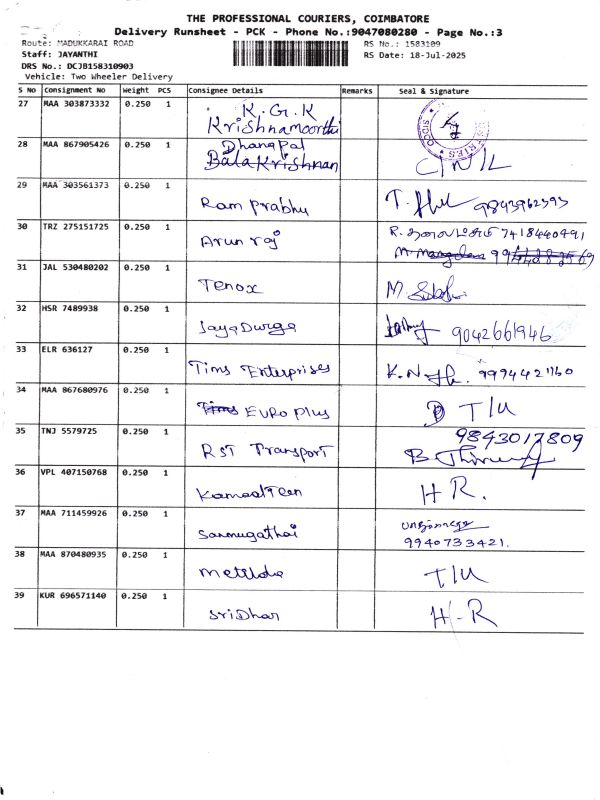 THE PROFESSIONAL COURIERS, COIMBATORE
Delivery Runsheet - PCK - Phone No.:9047080280 - Page No.:3
Route: MADUKKARAI ROAD RS No.: 1583109
Staff: JAYANTHI RS Date: 18-Jul-2025
DRS No.: DCJB158310903
Vehicle: Two Wheeler Delivery
S No Consignment No Weight PCS Consignee Details Remarks Seal & Signature
27 MAA 303873332 0.250 1 K.G.K
Krishnamoorthi
28 MAA 867905426 0.250 1 Dhanapal
Balakrishnan
29 MAA 303561373 0.250 1 Ram prabhu 9843962393
30 TRZ 275151725 0.250 1 Arun raj R. 7418440491
31 JAL 530480202 0.250 1 Tenox M
32 HSR 7489938 0.250 1 Jaya Durga 9042661946
33 ELR 636127 0.250 1 Tims Enterprises K.N 9994421160
34 MAA 867680976 0.250 1 Tims Euro plus T/U
35 TNJ 5579725 0.250 1 RST Transport 9843017809
36 VPL 407150768 0.250 1 H R.
37 MAA 711459926 0.250 1 Sanmugathai
9940733421.
38 MAA 870480935 0.250 1 T/U
39 KUR 696571140 0.250 1 Sridhar H-R